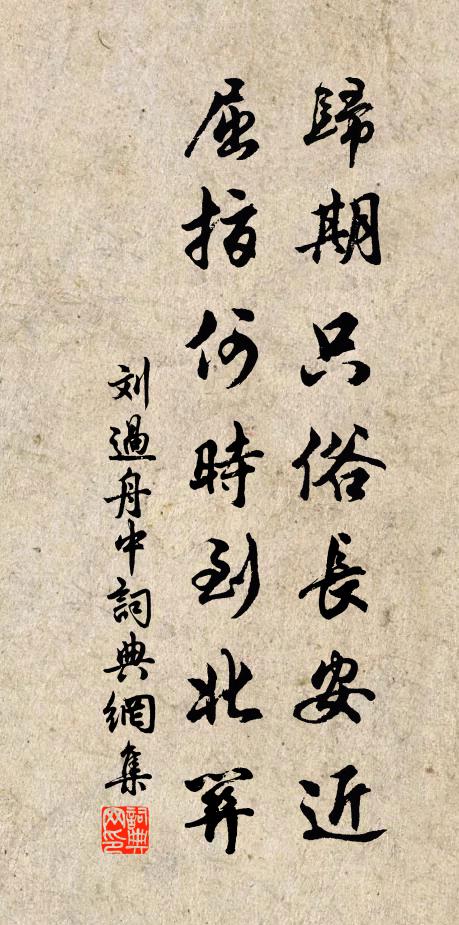 歸期只俗長安近
屈指何時到北關
刘過舟中詞典網集
詞典網印